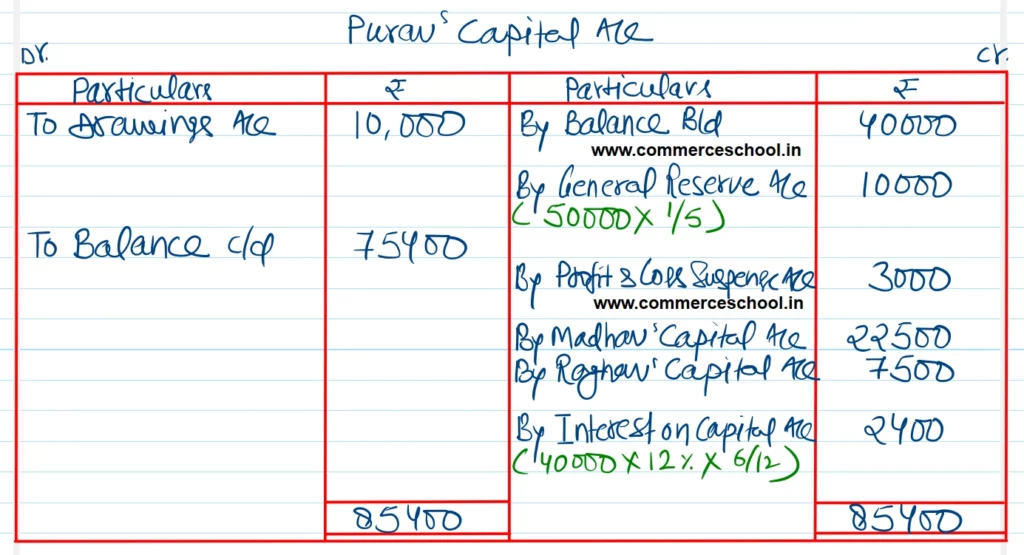 Purav's Capital A/c
Dr.
Cr.
Particulars ₹ Particulars ₹
To Drawings A/c 10,000 By Balance B/d 40000
www.commerceschool.in
By General Reserve A/c 10000
(50000 X 1/5)
To Balance c/d 75400
By Profit & Loss Suspense A/c 3000
www.commerceschool.in
By Madhav's Capital A/c 22500
By Raghav's Capital A/c 7500
By Interest on Capital A/c 2400
(40000 X 12% X 6/12)
85400 85400